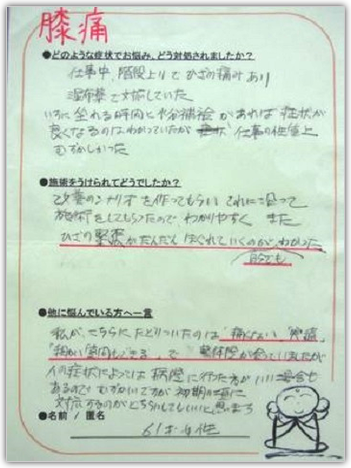 膝痛
●どのような症状でお悩み、どう対処されましたか?
仕事中、階段上りでひざの痛みあり
湿布薬で対応していた
いすに坐れる時間と水分補給があれば症状が
良くなるのはわかっていたが 仕事の性質上
むずかしかった
●施術をうけられてどうでしたか?
改善のシナリオを作ってもらい それに沿って
施術をしてもらったので わかりやすく また
ひざの緊張がだんだん ほぐれていくのが わかった
自分でも
●他に悩んでいる方へ一言
私が、こちらに たどりついたのは「痛くない」「膝痛」
で 整体院が合っていましたが
の症状によっては 病院に行った方がいい場合も
あるので むずかしいですが 初期に
対応するのがどちらにしてもいいと思います
●名前 / 匿名
61才 女性